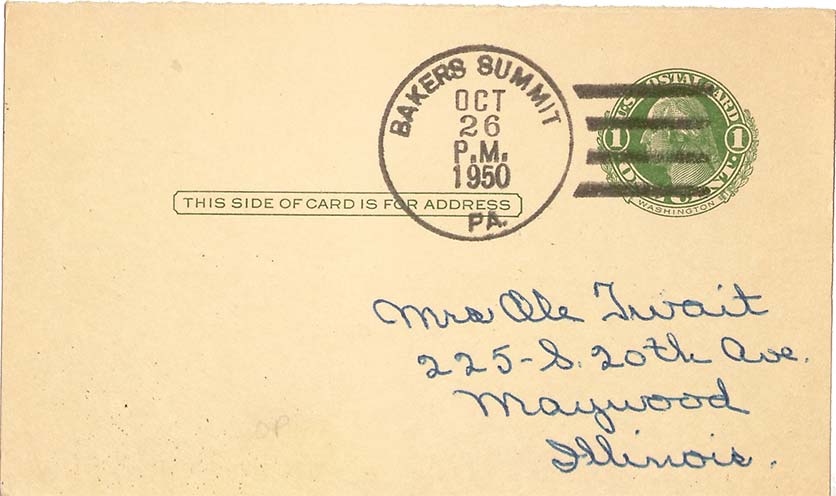 BAKERS SUMMIT
OCT
26
P.M.
1950
PA.
U.S. POSTAL CARD
1 1
ONE CENT
WASHINGTON
THIS SIDE OF CARD IS FOR ADDRESS
Mrs Ole Twait
225-S. 20th Ave.
Maywood
Illinois.
OP